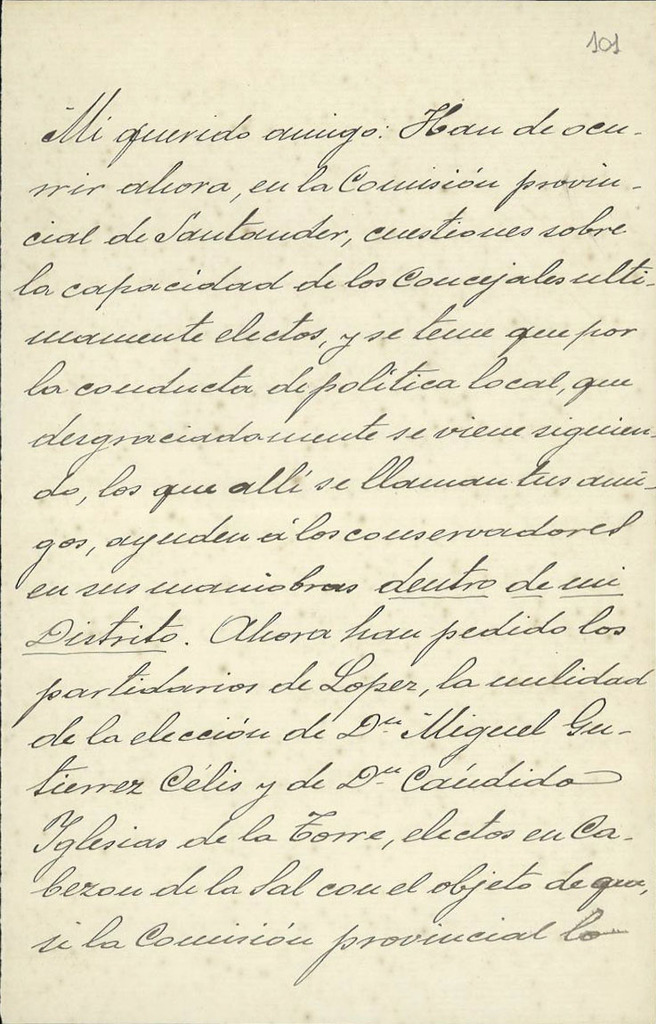 101
Mi querido amigo: Han de ocu-
rrir ahora, en la Comisión provin-
cial de Santander, cuestiones sobre
la capacidad de los Concejales ulti-
mamente electos, y se teme que por
la conducta de política local, que
desgraciadamente se viene siguien-
do, los que allí se llaman tus ami-
gos, ayuden á los conservadores
en sus maniobras dentro de mi
Distrito. Ahora han pedido los
partidarios de Lopez, la nulidad
de la elección de Dn Miguel Gu-
tierrez Célis y de Dn Cándido
Yglesias de la Torre, electos en Ca-
bezon de la Sal con el objeto de que,
si la Comisión provincial lo